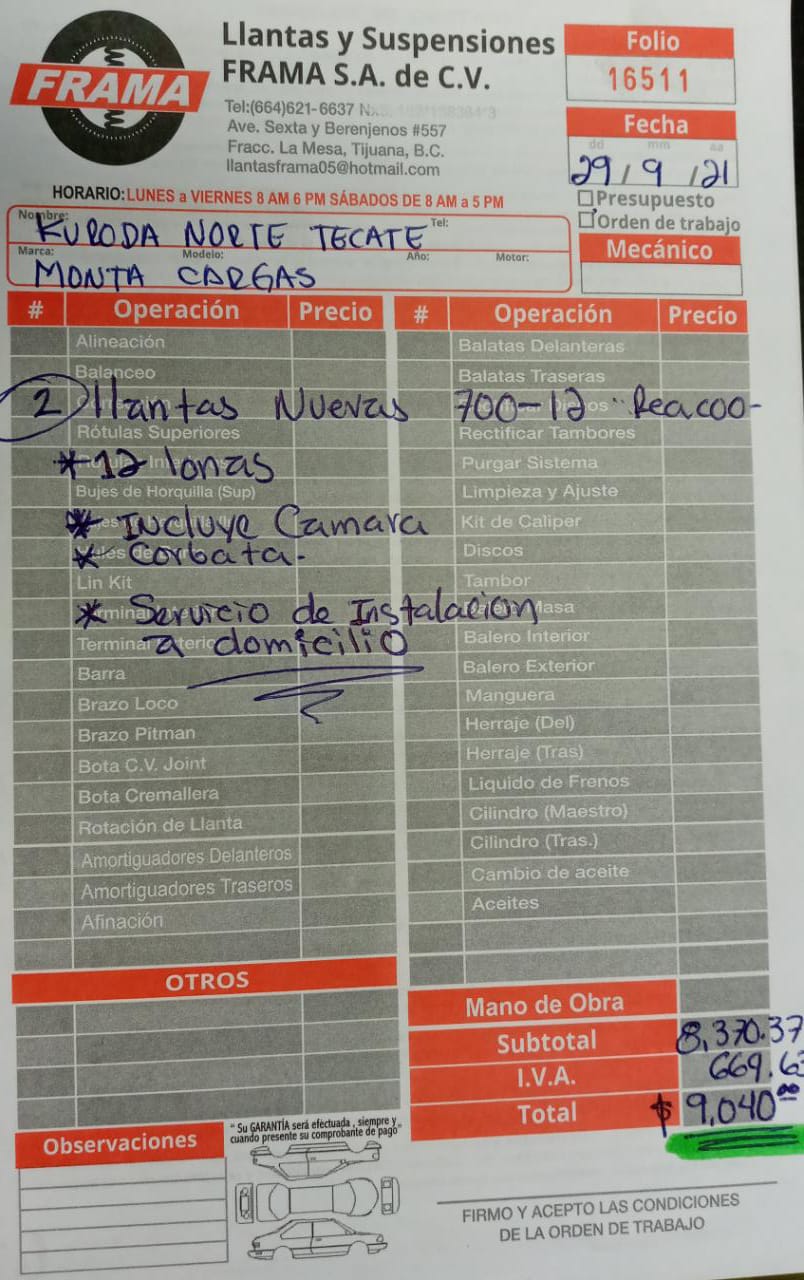 FRAMA
Llantas y Suspensiones
FRAMA S.A. de C.V.
Tel:(664)621-6637
Ave. Sexta y Berenjenos #557
Fracc. La Mesa, Tijuana, B.C.
llantasframa05@hotmail.com
Folio
16511
Fecha
dd mm aa
29/9/21
HORARIO: LUNES a VIERNES 8 AM 6 PM SÁBADOS DE 8 AM a 5 PM
Presupuesto
Orden de trabajo
Nombre: KURODA NORTE TECATE Tel:
Marca: Modelo: Año: Motor:
MONTA CARGAS
Mecánico
# Operación Precio # Operación Precio
Alineación Balatas Delanteras
Balanceo Balatas Traseras
2 llantas Nuevas 700-12
Rótulas Superiores Rectificar Tambores
* 12 lonas Purgar Sistema
Bujes de Horquilla (Sup) Limpieza y Ajuste
* Incluye Camara Kit de Caliper
* Corbata- Discos
Lin Kit Tambor
* Servicio de Instalacion
a domicilio Balero Interior
Barra Balero Exterior
Brazo Loco Manguera
Brazo Pitman Herraje (Del)
Bota C.V. Joint Herraje (Tras)
Bota Cremallera Liquido de Frenos
Rotación de Llanta Cilindro (Maestro)
Amortiguadores Delanteros Cilindro (Tras.)
Amortiguadores Traseros Cambio de aceite
Afinación Aceites
OTROS
Mano de Obra
Subtotal 8,370.37
I.V.A. 669.63
Total $ 9,040.00
Observaciones
" Su GARANTÍA será efectuada , siempre y
cuando presente su comprobante de pago"
FIRMO Y ACEPTO LAS CONDICIONES
DE LA ORDEN DE TRABAJO